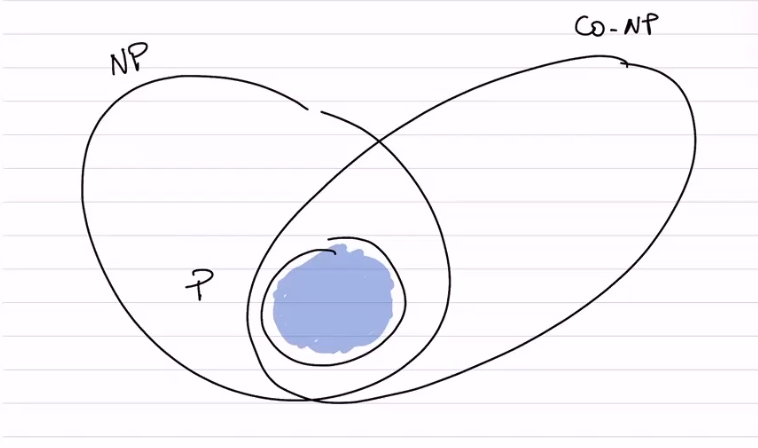 NP
Co-NP
P